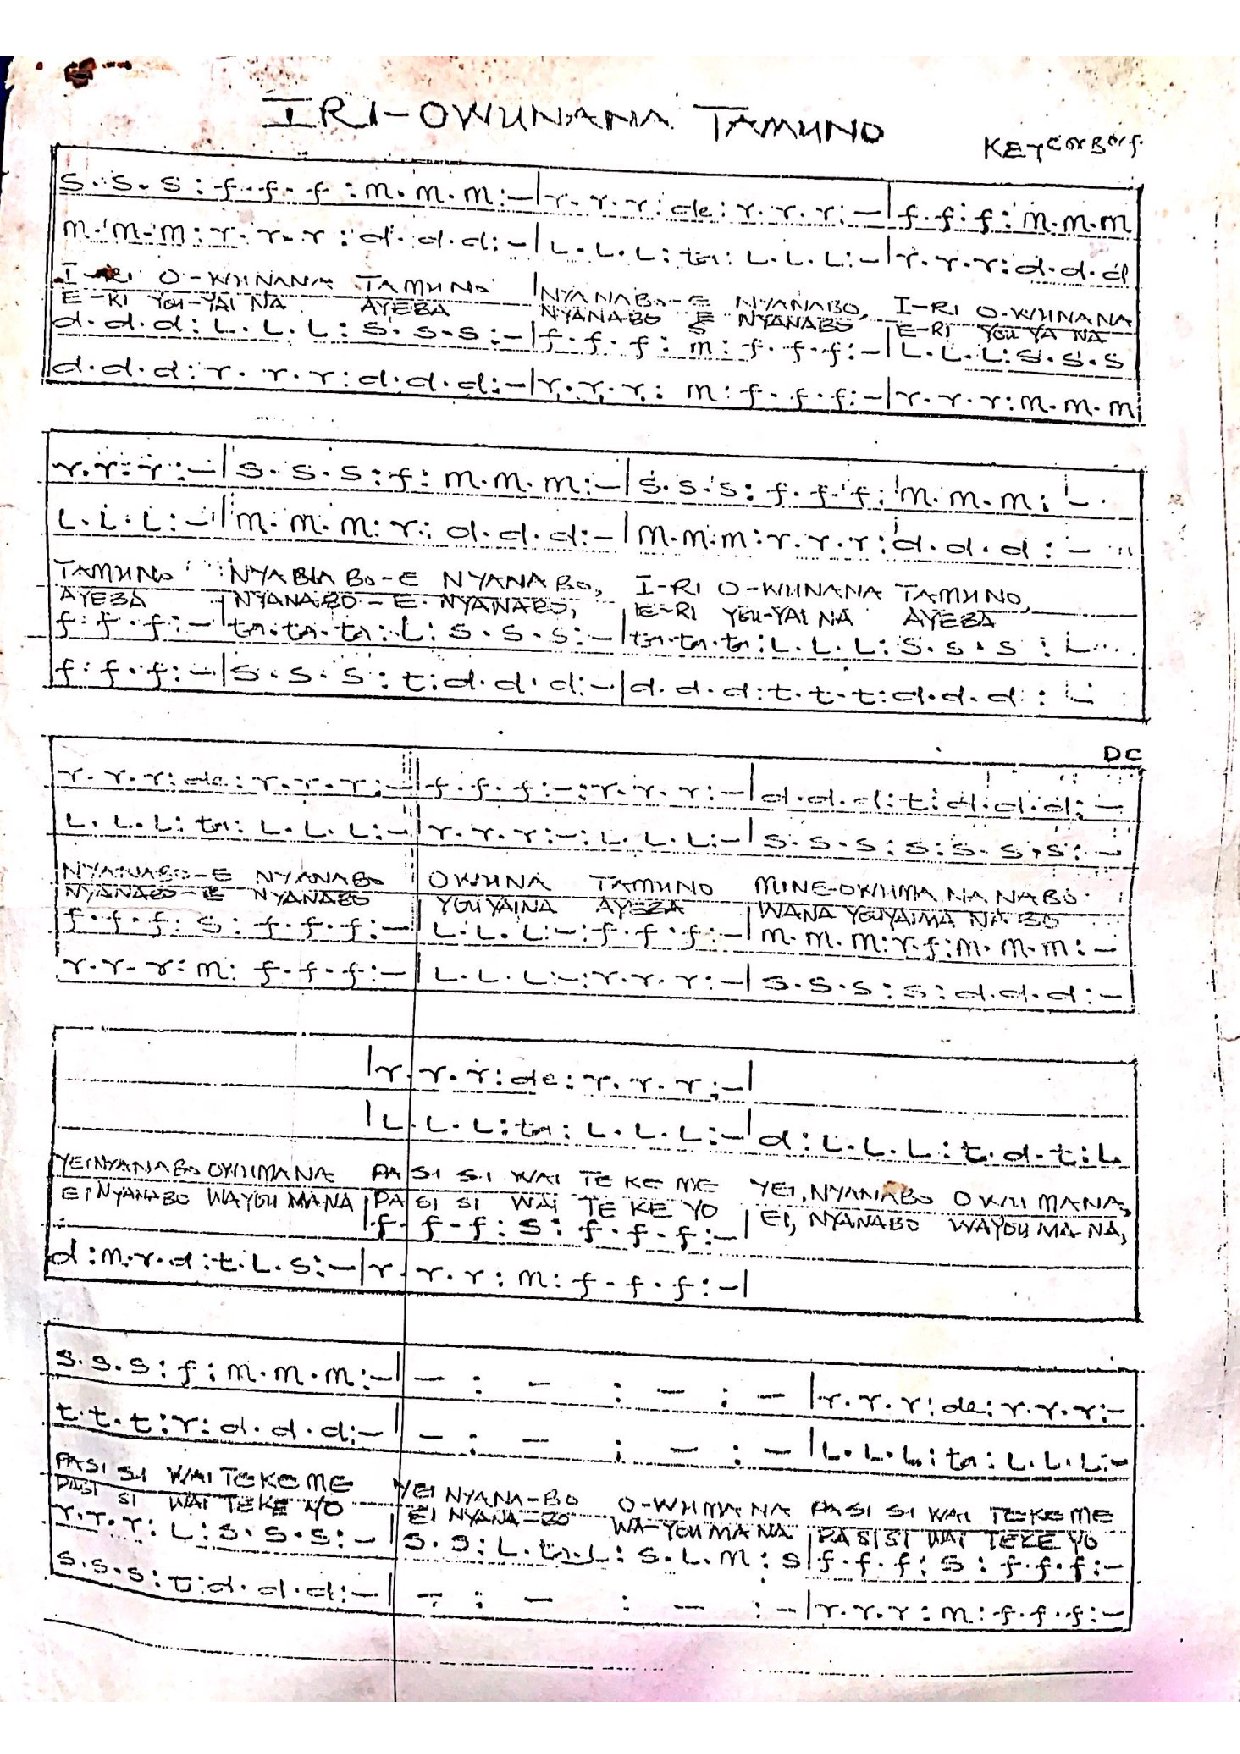 IRI-OWUNANA TAMUNO
KEY C or B or f
s.s.s:f.f.f:m.m.m:-|r.r.r:de:r.r.r:-|f.f.f:m.m.m
m.m.m:r.r.r:d.d.d:-|L.L.L:ta:L.L.L:-|r.r.r:d.d.d
I-RI O-WUNANA TAMUNO NYANABO-E NYANABO, I-RI O-WUNANA
E-RI YOU-YAI NA AYEBA NYANABO E NYANABO E-RI YOU YA NA
d.d.d:L.L.L:s.s.s:-|f.f.f:m:f.f.f:-|L.L.L:s.s.s
d.d.d:r.r.r:d.d.d:-|r.r.r:m:f.f.f:-|r.r.r:m.m.m
r.r.r:-|s.s.s:f:m.m.m:-|s.s.s:f.f.f:m.m.m:-
L.L.L:-|m.m.m:r:d.d.d:-|m.m.m:r.r.r:d.d.d:-
TAMUNO NYABIABO-E NYANABO, I-RI O-WUNANA TAMUNO,
AYEBA NYANABO-E NYANABO, E-RI YOU-YAI NA AYEBA
f.f.f:-|ta.ta.ta:L:s.s.s:-|ta.ta.ta:L.L.L:s.s.s:-
f.f.f:-|s.s.s:t:d.d.d:-|d.d.d:t.t.t:d.d.d:-
DC
r.r.r:de:r.r.r:-|f.f.f:-:r.r.r:-|d.d.d:t:d.d.d:-
L.L.L:ta:L.L.L:-|r.r.r:-:L.L.L:-|s.s.s:s:s.s.s:-
NYANABO-E NYANABO OWUNA TAMUNO MINE-OWUMA NA NABO
NYANABO-E NYANABO YOUYAINA AYEBA WANA YOUYAIMA NA BO
f.f.f:s:f.f.f:-|L.L.L:-:f.f.f:-|m.m.m:r.f:m.m.m:-
r.r.r:m:f.f.f:-|L.L.L:-:r.r.r:-|s.s.s:s:d.d.d:-|
|r.r.r:de:r.r.r:-|
|L.L.L:ta:L.L.L:-|d:L.L.L:t.d.t:L
YEI NYANABO OWUMANA PA SI SI WAI TE KE ME YEI, NYANABO OWU MANA,
EI NYANABO WAYOU MANA|PA SI SI WAI TE KE YO EI, NYANABO WAYOU MA-NA,
|f.f.f:s:f.f.f:-|
d:m.r.d:t.L.s:-|r.r.r:m:f.f.f:-|
s.s.s:f:m.m.m:-|-:-:-:-|r.r.r:de:r.r.r:-
t.t.t:r:d.d.d:-|-:-:-:-|L.L.L:ta:L.L.L:-
PASI SI WAI TEKE ME YEI NYANA-BO O-WUMA NA PASI SI WAI TEKE ME
PASI SI WAI TEKE YO EI NYANA-BO WA-YOU MA NA |PA SI SI WAI TEKE YO
r.r.r:L:s.s.s:-|s.s:L.ta.L:s.L.m:s|f.f.f:s:f.f.f:-
s.s.s:t:d.d.d:-|-:-:-:-|r.r.r:m:f.f.f:-